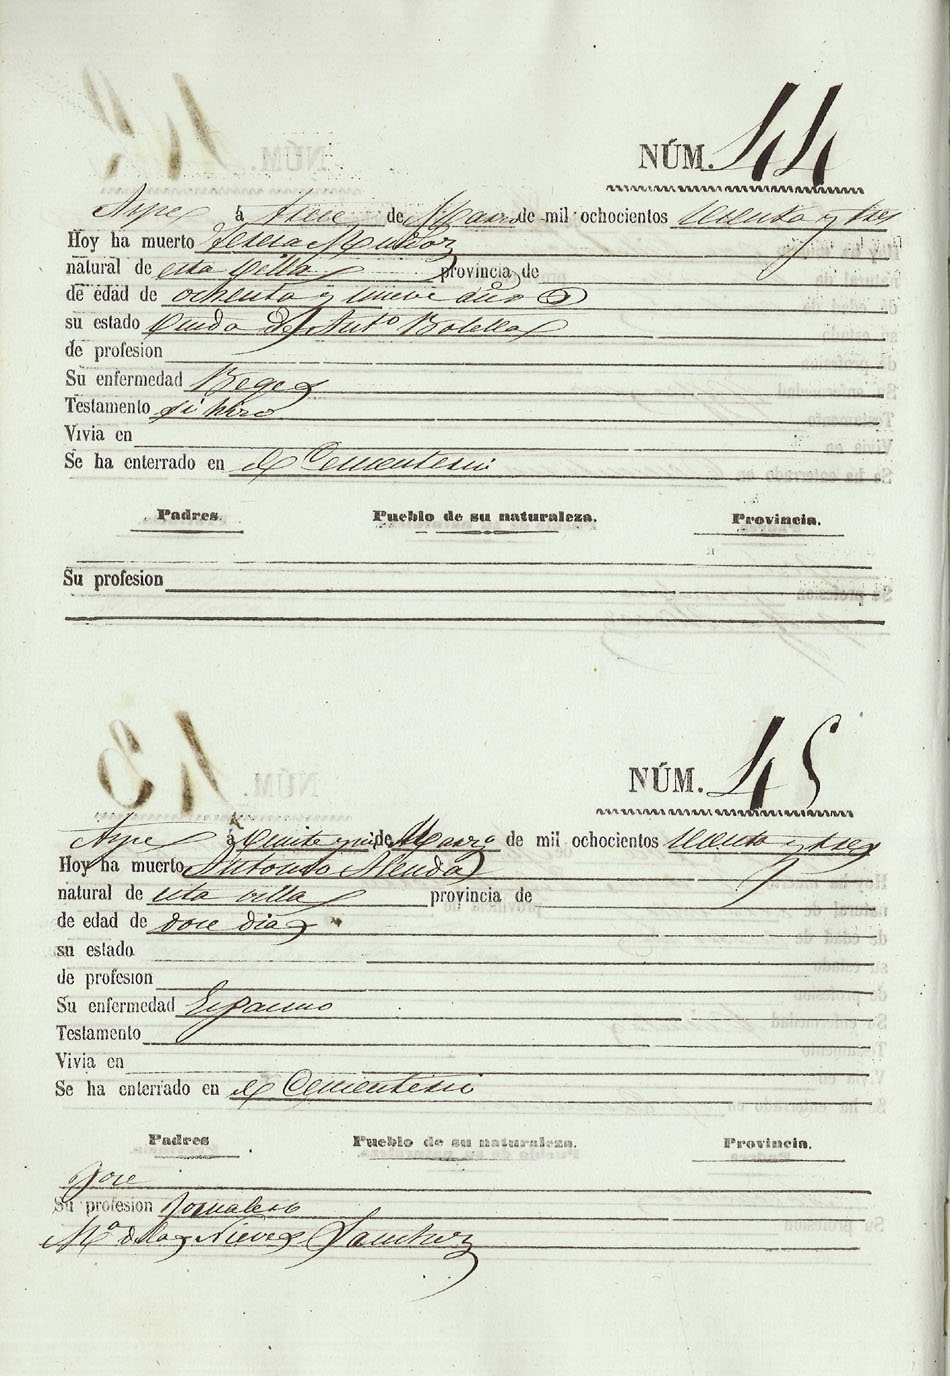 NÚM. 44
Aspe á trece de Marzo de mil ochocientos sesenta y tres
Hoy ha muerto Teresa Muñoz
natural de esta Villa provincia de
de edad de ochenta y nueve años
su estado Viuda de Antº Botella
de profesion
Su enfermedad Vegez
Testamento si hizo
Vivia en
Se ha enterrado en el Cementerio
Padres. Pueblo de su naturaleza. Provincia.
Su profesion
NÚM. 45
Aspe á de Marzo de mil ochocientos sesenta y tres
Hoy ha muerto Antonio Alenda
natural de esta villa provincia de
de edad de doce dias
su estado
de profesion
Su enfermedad Espasmo
Testamento
Vivia en
Se ha enterrado en el Cementerio
Padres Pueblo de su naturaleza. Provincia.
Jose
Su profesion Jornalero
Mª de las Nieves Sanchez